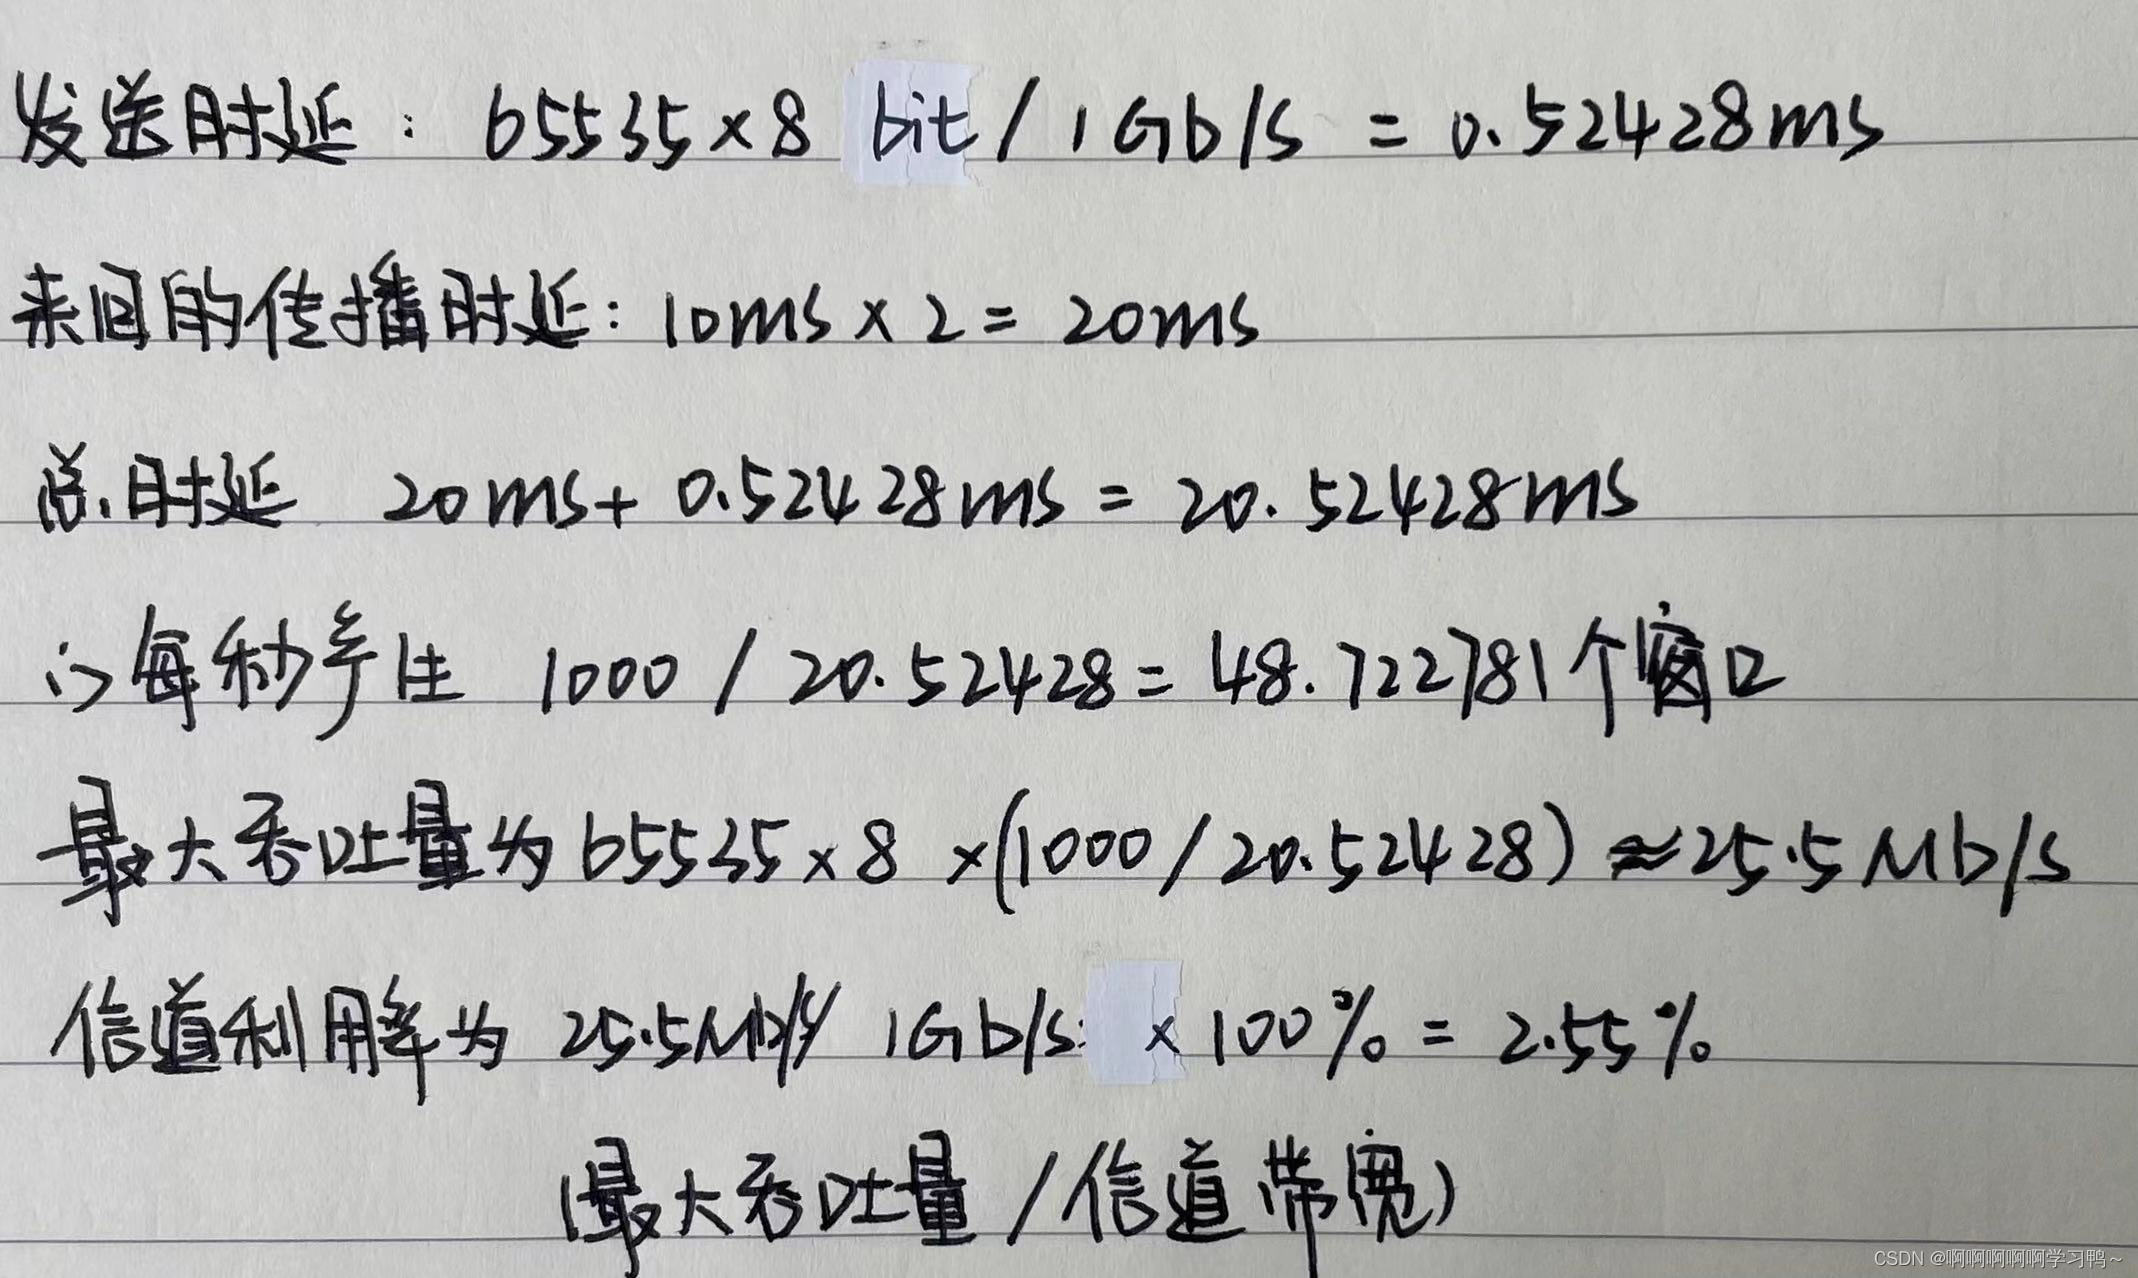 发送时延：65535×8 bit/1Gb/s = 0.52428ms
来回的传播时延：10ms×2=20ms
总时延 20ms+0.52428ms=20.52428ms
∴每秒产生 1000/20.52428=48.722781个窗口
最大吞吐量为65535×8×(1000/20.52428)≈25.5Mb/s
信道利用率为 25.5Mb/s/ 1Gb/s ×100%=2.55%
(最大吞吐量/信道带宽)
CSDN @啊啊啊啊啊学习鸭~